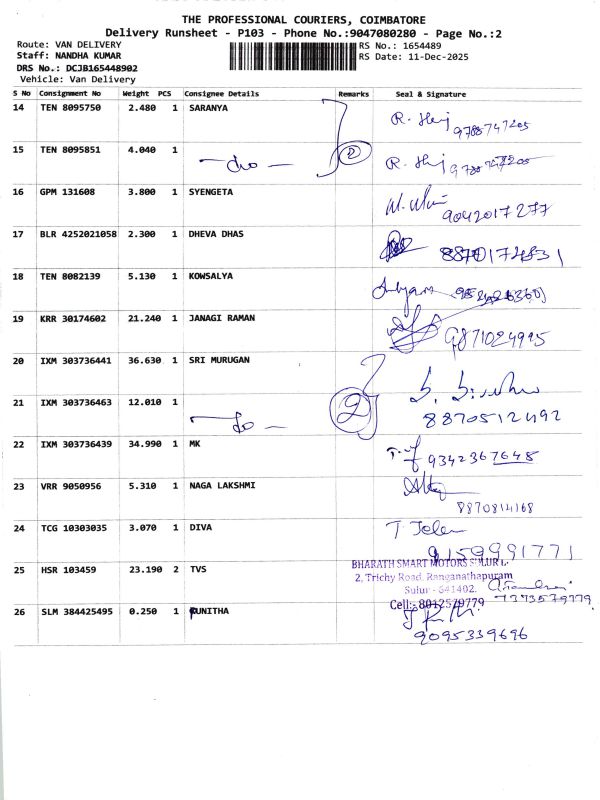 THE PROFESSIONAL COURIERS, COIMBATORE
Delivery Runsheet - P103 - Phone No.:9047080280 - Page No.:2
Route: VAN DELIVERY RS No.: 1654489
Staff: NANDHA KUMAR RS Date: 11-Dec-2025
DRS No.: DCJB165448902
Vehicle: Van Delivery
S No Consignment No Weight PCS Consignee Details Remarks Seal & Signature
14 TEN 8095750 2.480 1 SARANYA 9788747205
15 TEN 8095851 4.040 1 -do- 2
16 GPM 131608 3.800 1 SYENGETA 9042017277
17 BLR 4252021058 2.300 1 DHEVA DHAS
18 TEN 8082139 5.130 1 KOWSALYA
19 KRR 30174602 21.240 1 JANAGI RAMAN 9871024995
20 IXM 303736441 36.630 1 SRI MURUGAN
21 IXM 303736463 12.010 1 -do- 2 8870512492
22 IXM 303736439 34.990 1 MK 9342367648
23 VRR 9050956 5.310 1 NAGA LAKSHMI 8870814168
24 TCG 10303035 3.070 1 DIVA 9159991771
25 HSR 103459 23.190 2 TVS
BHARATH SMART MOTORS SULUR
2, Trichy Road, Ranganathapuram
Sulur - 641402.
Cell: 8012579779 7373579779
26 SLM 384425495 0.250 1 PUNITHA
9095339696